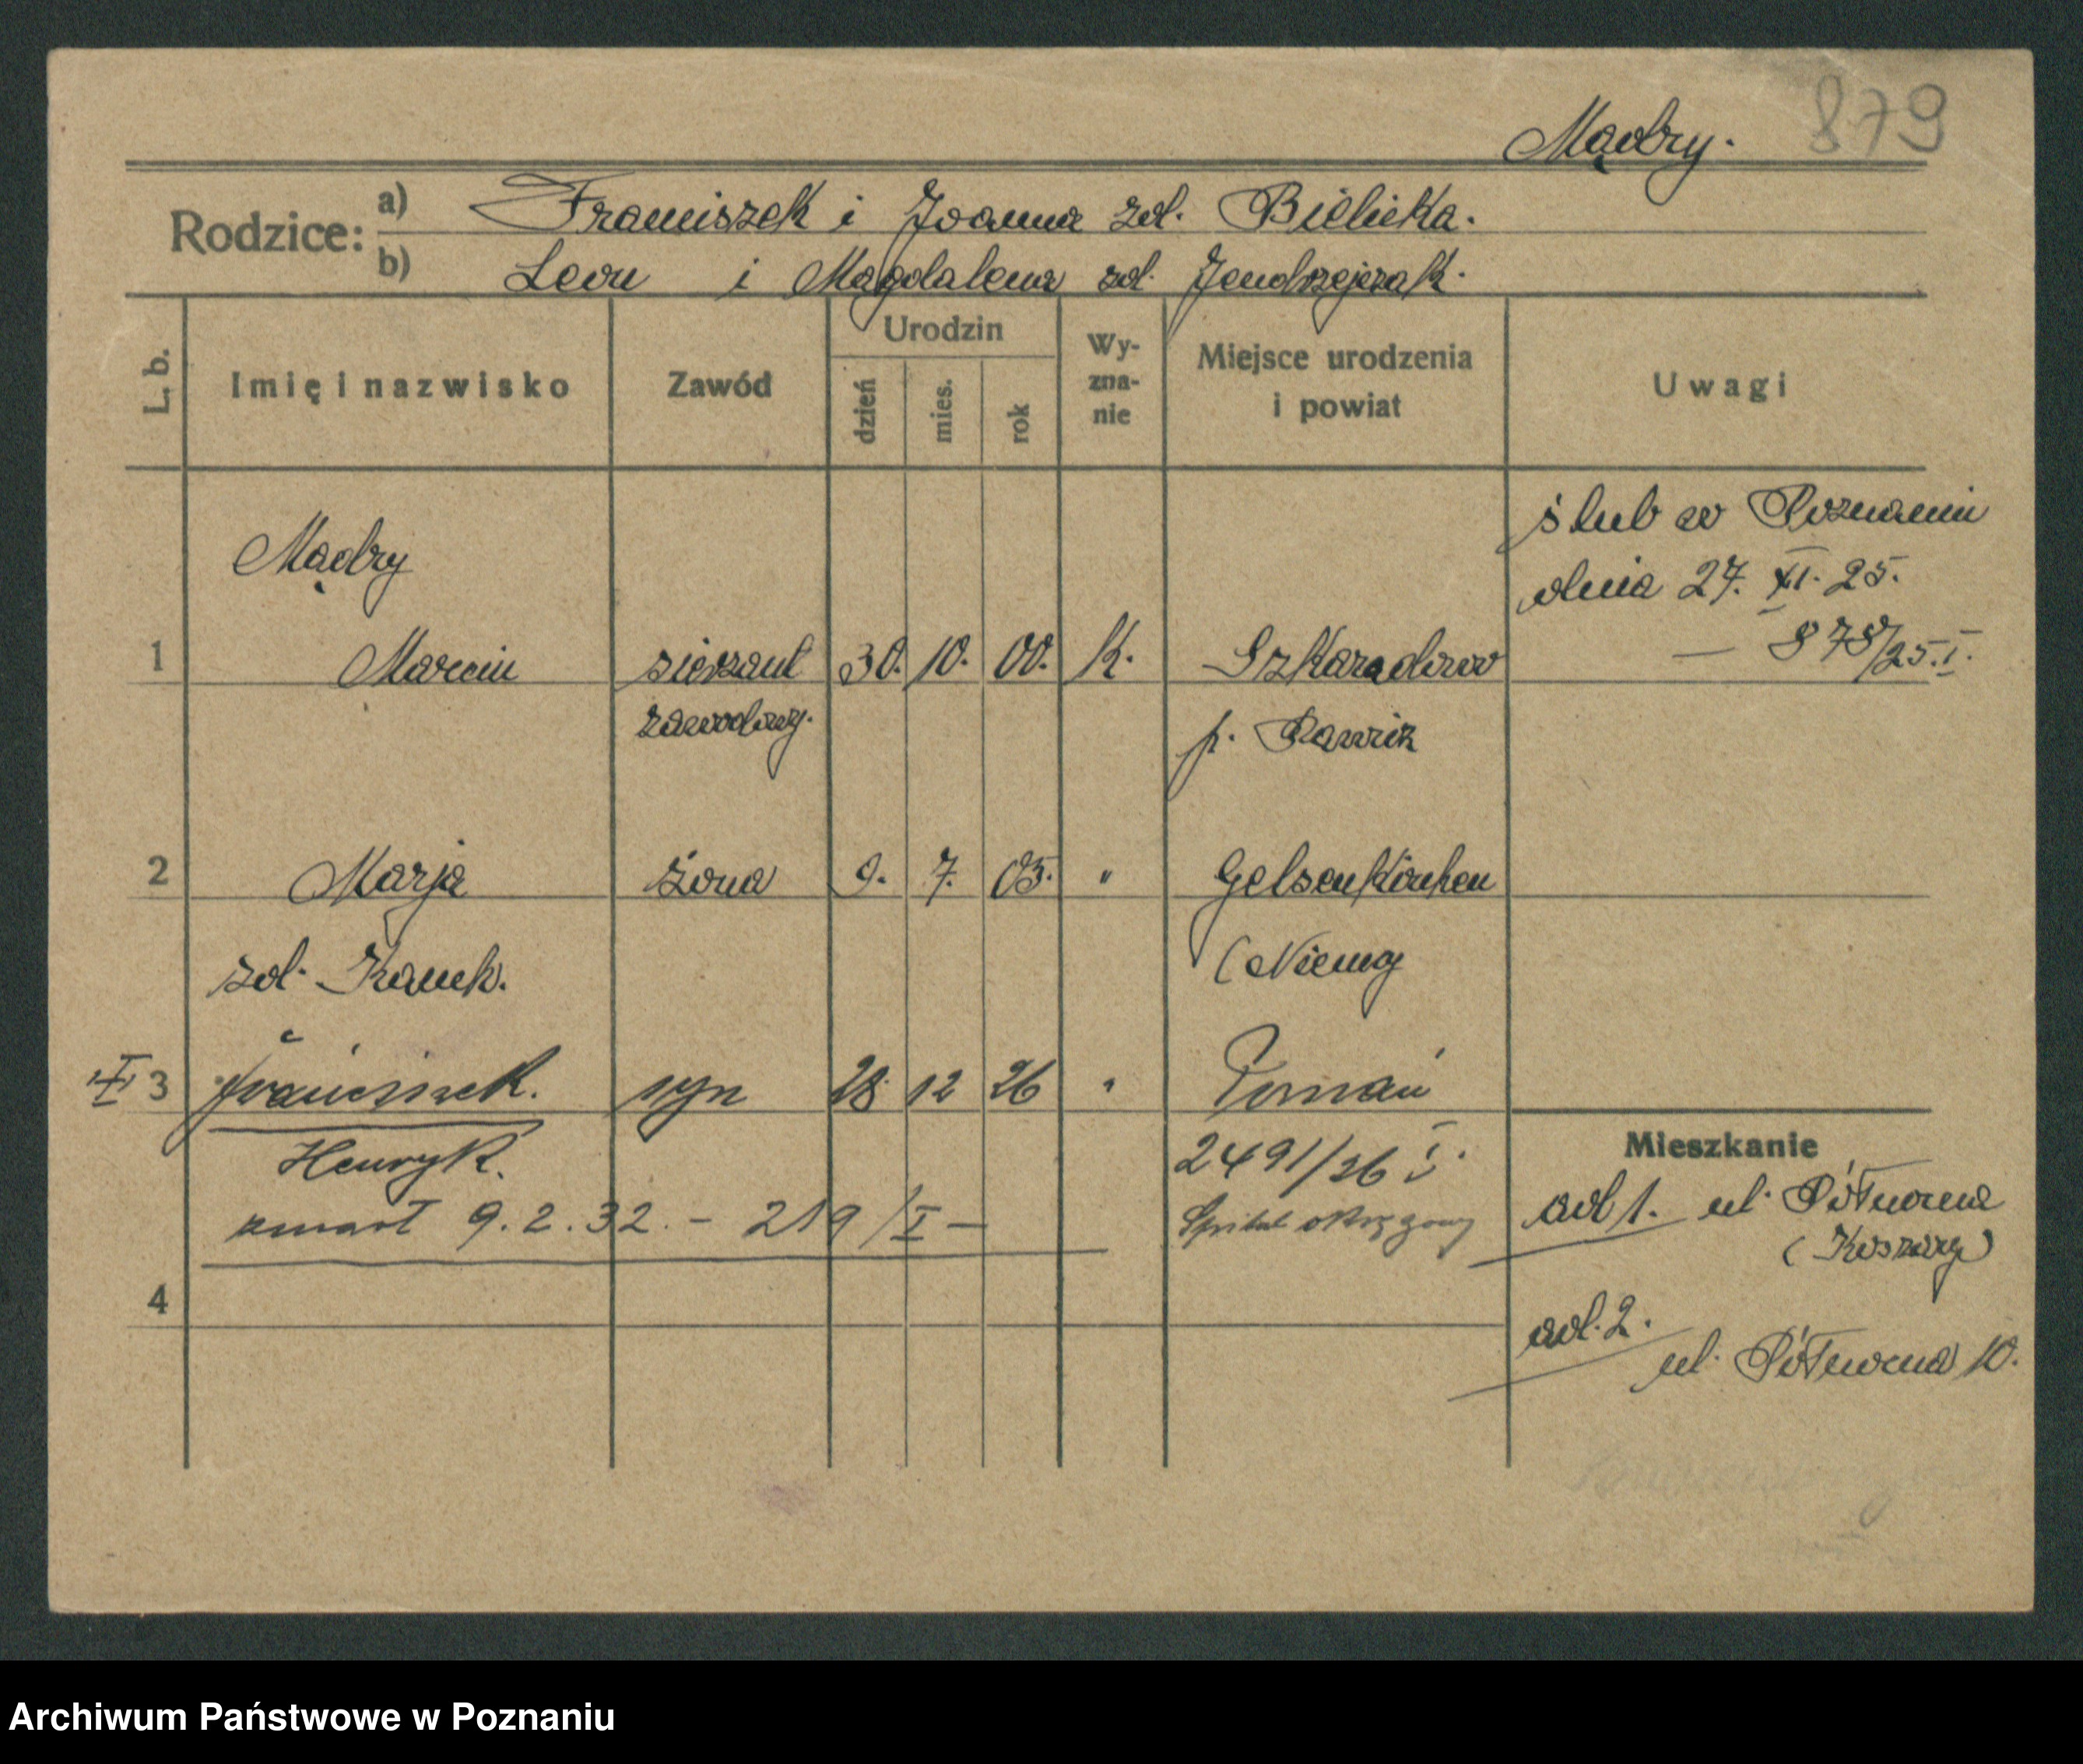 Mądry. 879
Rodzice: a) Franciszek i Joanna zd. Bielicka.
b) Leon i Magdalena zd. Jendrzejczak.
L. b. Imię i nazwisko Zawód Urodzin dzień mies. rok Wy-zna-nie Miejsce urodzenia i powiat Uwagi
ślub w Poznaniu
dnia 27. XI. 25.
— 878/25. I.
Mądry
1 Marcin sierżant 30. 10. 00. K. Szkaradowo
zawodowy. p. Rawicz
2 Marja żona 9. 7. 05. " Gelsenkirchen
zd. Kauch. (Niemcy
"I" 3 Franciszek. syn 28 12 26 " Poznań
Henryk. 2491/26 I.
zmarł 9.2.32. – 219/I – Szpital okręgowy
4
Mieszkanie
ad 1. ul. Półworna
(Koszary)
ad. 2.
ul. Półworna 10.
Archiwum Państwowe w Poznaniu